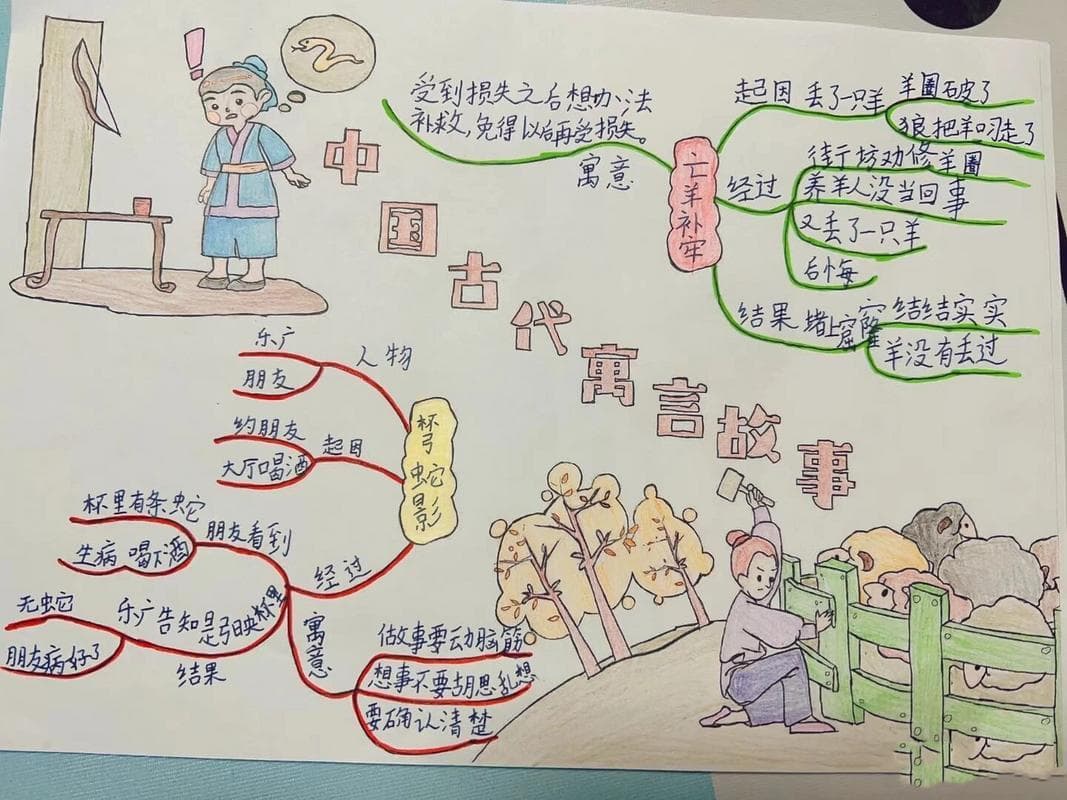 中国古代寓言故事
受到损失之后想办法
补救,免得以后再受损失。
寓意
亡羊补牢
起因
丢了一只羊
羊圈破了
狼把羊叼走了
经过
街坊劝修羊圈
养羊人没当回事
又丢了一只羊
后悔
结果
堵上窟窿
结结实实
羊没有丢过
杯弓蛇影
人物
乐广
朋友
起因
约朋友
大厅喝酒
经过
朋友看到
杯里有条蛇
生病 喝下酒
乐广告知是弓映杯里
无蛇
朋友病好了
结果
寓意
做故事要动脑筋
想事不要胡思乱想
要确认清楚